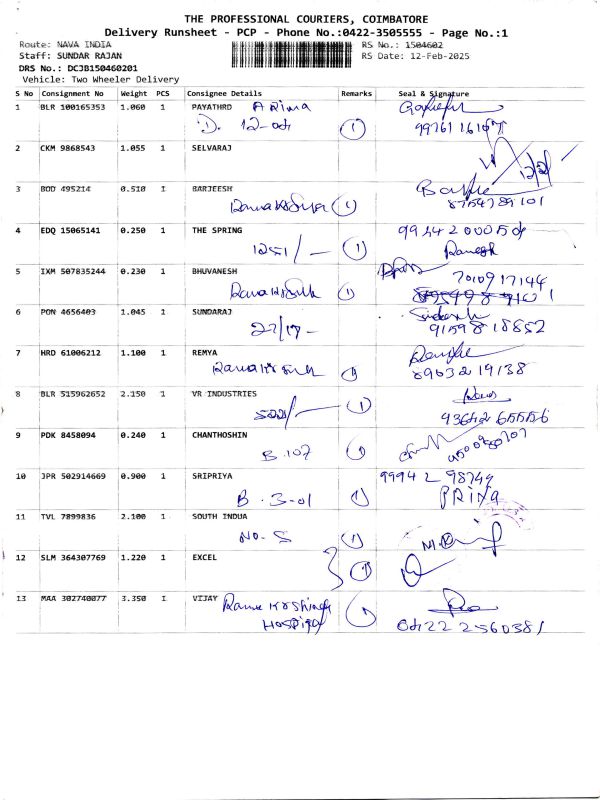 THE PROFESSIONAL COURIERS, COIMBATORE
Delivery Runsheet - PCP - Phone No.:0422-3505555 - Page No.:1
Route: NAVA INDIA RS No.: 1504602
Staff: SUNDAR RAJAN RS Date: 12-Feb-2025
DRS No.: DCJB150460201
Vehicle: Two Wheeler Delivery
S No Consignment No Weight PCS Consignee Details Remarks Seal & Signature
1 BLR 100165353 1.060 1 PAYATHRD
1
2 CKM 9868543 1.055 1 SELVARAJ
3 BOD 495214 0.510 1 BARJEESH
1 8754789101
4 EDQ 15065141 0.250 1 THE SPRING
1251/- 1 Ramesh
5 IXM 507835244 0.230 1 BHUVANESH
1 7010917144
6 PON 4656403 1.045 1 SUNDARAJ
27/17- 91598 18852
7 HRD 61006212 1.100 1 REMYA
1 89032 19138
8 BLR 515962652 2.150 1 VR INDUSTRIES
1 93642 65556
9 PDK 8458094 0.240 1 CHANTHOSHIN
B.107 1
10 JPR 502914669 0.900 1 SRIPRIYA 9994 2 98749
B.3-01 1 PRIYA
11 TVL 7899836 2.100 1 SOUTH INDUA
NO-S 1
12 SLM 364307769 1.220 1 EXCEL
1
13 MAA 302740077 3.350 1 VIJAY
Hospital 1 0422 2560381